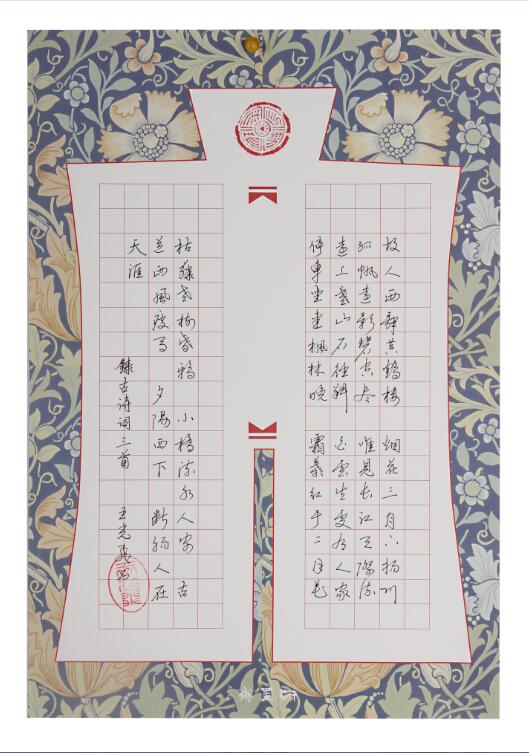 故人西辞黄鹤楼 烟花三月下扬州
孤帆远影碧空尽 唯见长江天际流
远上寒山石径斜 白云生处有人家
停车坐爱枫林晚 霜叶红于二月花
枯藤老树昏鸦 小桥流水人家 古
道西风瘦马 夕阳西下 断肠人在
天涯
录古诗词三首